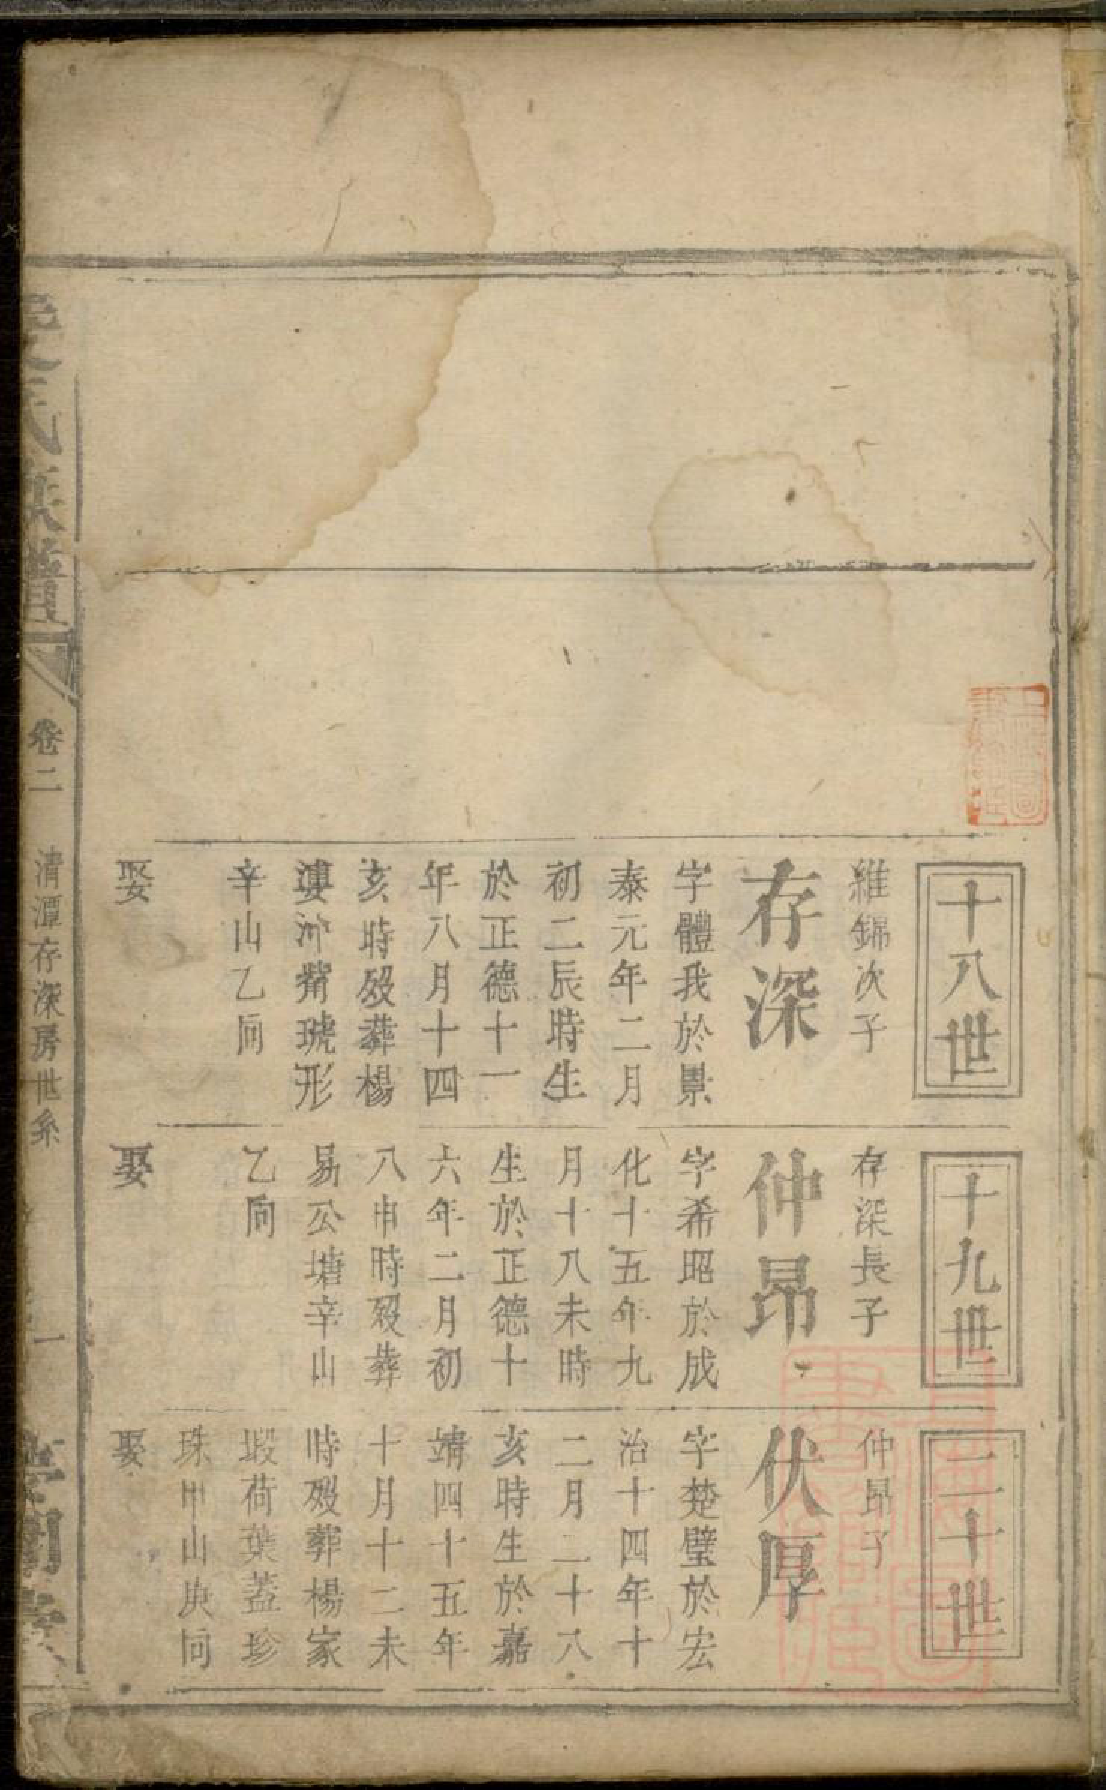 十八世
維錦次子
存深
字體我於景
泰元年二月
初二辰時生
於正德十一
年八月十四
亥時殁葬楊
沖形
辛山乙向
娶
十九世
存深長子
仲昂
字希昭於成
化十五年九
月十八未時
生於正德十
六年二月初
八申時殁葬
易公塘辛山
乙向
娶
二十世
仲昂子
伏厚
字楚璧於宏
治十四年十
二月二十八
亥時生於嘉
靖四十五年
十月十二未
時殁葬楊家
塅荷葉蓋珍
珠甲山庚向
娶
氏族譜
卷二
清潭存深房世系
一